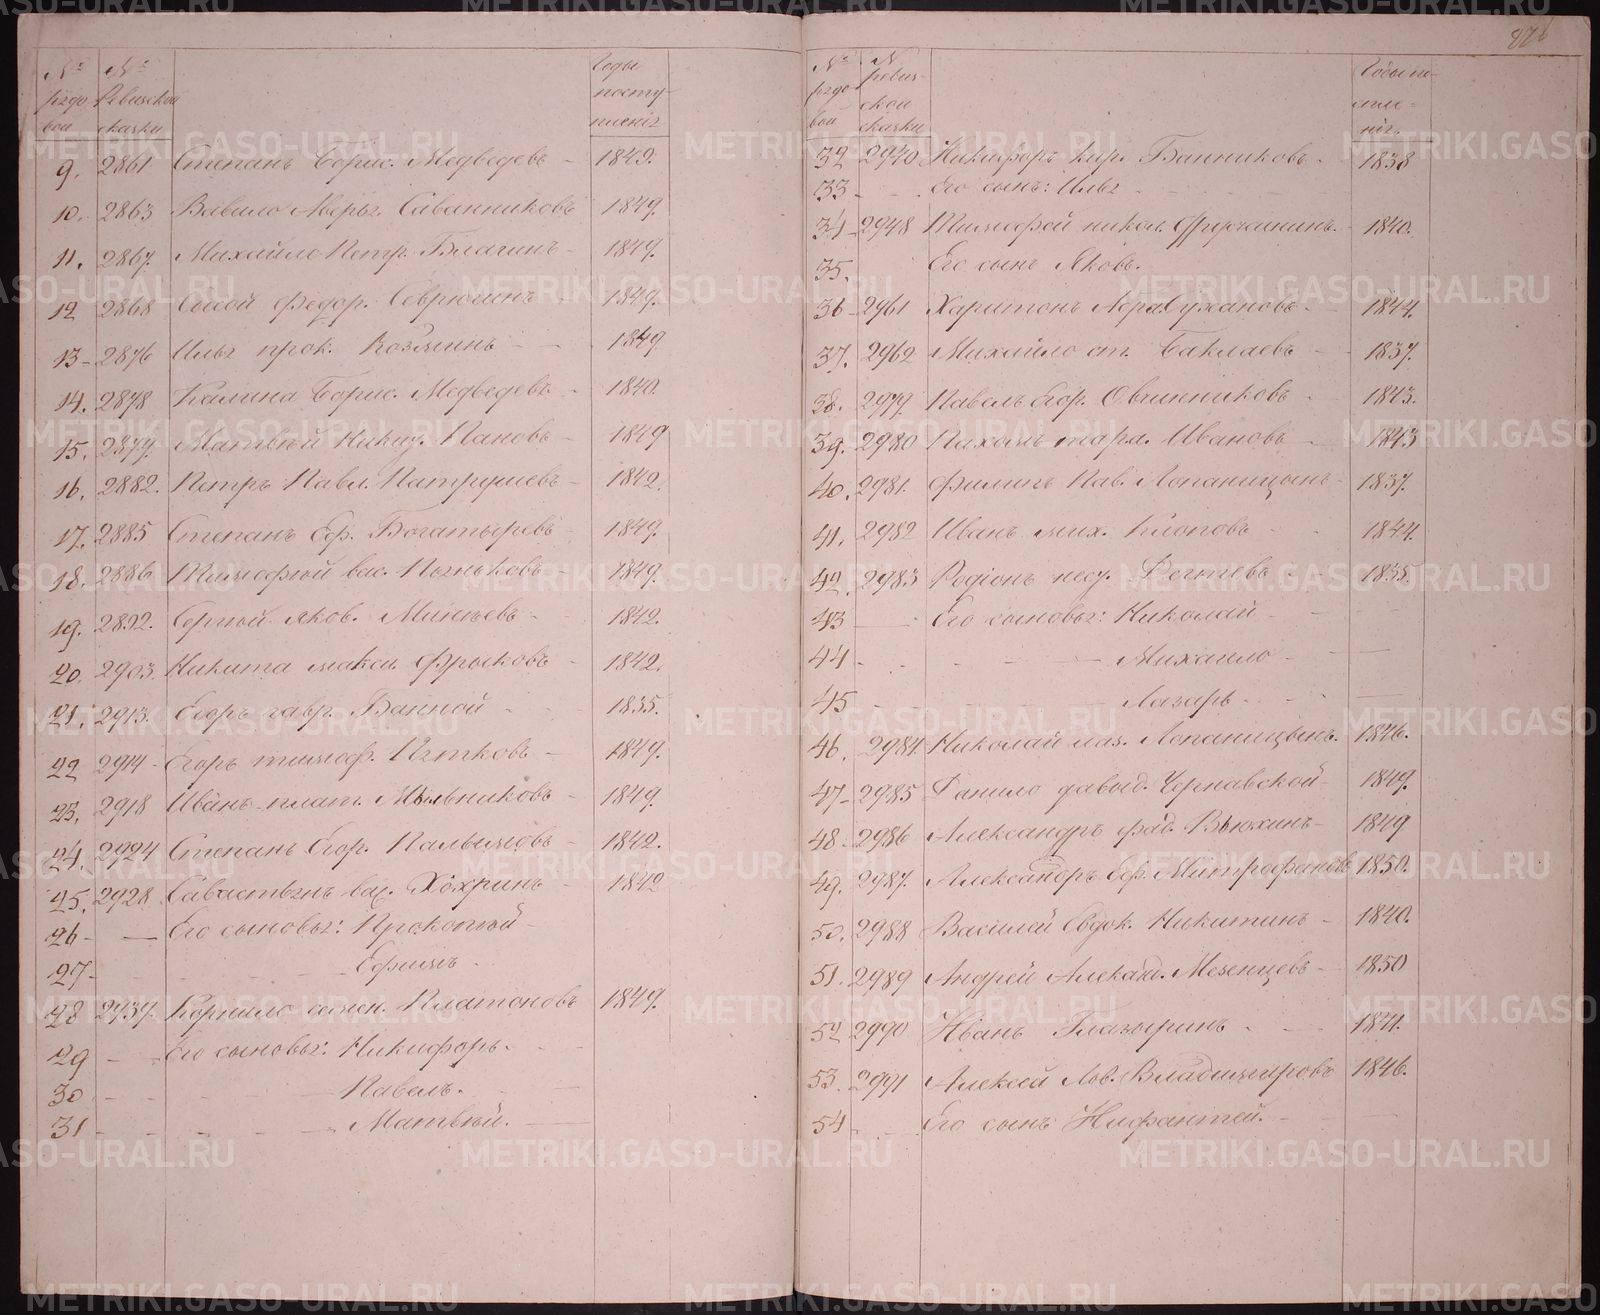 876
№ рядовой № Ревизской сказки Годы поступленія
9. 2861 Степанъ Борис. Медведевъ 1849.
10. 2863 Вавило Аверья. Саванниковъ 1849.
11. 2867. Михайло Петр. Благинъ 1849.
12 2868 Сысой Федор. Севрюгинъ 1849.
13 2876 Илья прок. 1849
14. 2878 Калина Борис. Медведевъ 1840.
15. 2879. Матвѣй Никиф. Пановъ 1849
16. 2882. Петръ Павл. Патрушевъ 1842.
17. 2885 Степанъ Еф. Богатыревъ 1849.
18. 2886 Тимофѣй вас. Пѣньковъ 1849.
19. 2892. Сергѣй яков. Минѣевъ 1842.
20. 2903. Никита макси. 1842.
21. 2913. Егоръ гавр. Банной 1835.
22 2914 Егоръ тимоф. Пятковъ 1849.
23. 2918 Иванъ плат. Мыльниковъ 1849.
24. 2924 Степанъ Егор. 1842.
25. 2928 Савастьянъ вас. Хохринъ 1842
26 Его сыновья: Прокопѣй
27 Ефимъ
28 2939. Корнило семен. Платоновъ 1849.
29 Его сыновья: Никифоръ.
30 Павелъ.
31 Матвѣй.
№ рядовой № ревизской сказки Годы поступленія.
32 2940 Никифоръ кир. Банниковъ 1838
33 Его сынъ: Илья
34 2948 Тимофей никол. 1840.
35. Его сынъ Яковъ.
36 2961 Харитонъ 1844.
37. 2962 Михайло ст. Баклаевъ 1837.
38. 2979. Павелъ Егор. Овчинниковъ 1843.
39. 2980 Пахомъ тара. Ивановъ 1843
40. 2981. Филипъ Пав. Лопаницынъ 1837.
41. 2982 Иванъ мих. Клоповъ 1844.
42. 2983 Родіонъ нест. 1835.
43 Его сыновья: Николай
44 Михаило
45 Лазарь
46. 2984 Николай лаз. Лопаницынъ. 1846.
47 2985 Данило давыд. Чернавской 1849.
48. 2986 Александръ фад. Вьюхинъ 1849
49. 2987. Александръ Еф. Митрофановъ 1850.
50. 2988 Василей Евдок. Никитинъ 1840.
51. 2989 Андрей Алексан. Мезенцевъ 1850
52 2990 Иванъ Глазыринъ
53. 2991 Алексей Лов. Владимировъ 1846.
54 Его сынъ Нифантей.